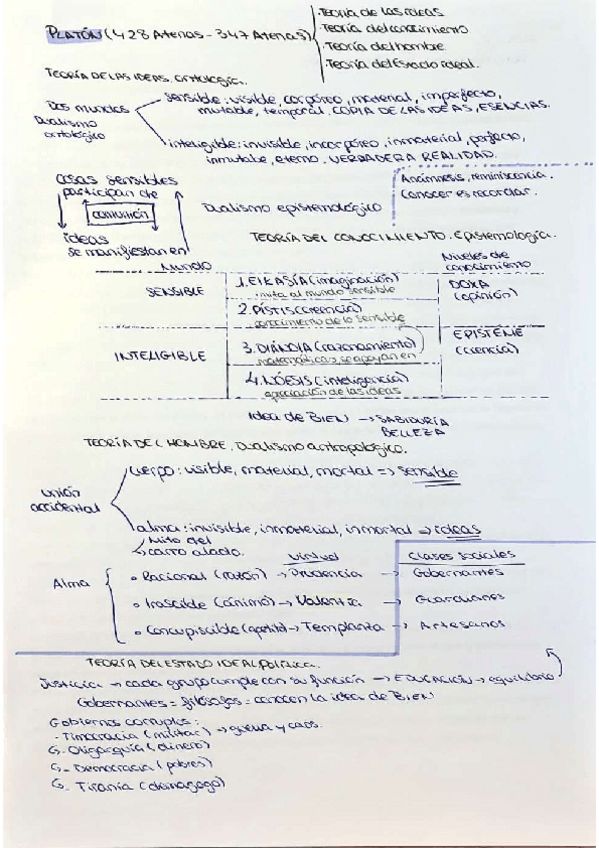 PLATÓN (428 Atenas - 347 Atenas)
· Teoría de las ideas
· Teoría del conocimiento
· Teoría del hombre
· Teoría del Estado ideal.
TEORÍA DE LAS IDEAS. Ontología.
Dos mundos
Dualismo
ontológico
sensible: visible, corpóreo, material, imperfecto,
mutable, temporal. COPIA DE LAS IDEAS, ESENCIAS.
inteligible: invisible, incorpóreo, inmaterial, perfecto,
inmutable, eterno. VERDADERA REALIDAD.
Cosas sensibles
participan de
comunión
ideas
se manifiestan en
Dualismo epistemológico
Anámnesis, reminiscencia.
Conocer es recordar.
TEORÍA DEL CONOCIMIENTO. Epistemología.
Mundo
Niveles de
conocimiento
SENSIBLE
1. EIKASÍA (imaginación)
imita al mundo sensible
2. PÍSTIS (creencia)
conocimiento de lo sensible
DOXA
(opinión)
INTELIGIBLE
3. DIÁNOIA (razonamiento)
matemáticas se apoyan en
4. NÓESIS (inteligencia)
apreciación de las ideas
EPISTEME
(ciencia)
Idea de BIEN → SABIDURÍA
BELLEZA
TEORÍA DEL HOMBRE. Dualismo antropológico.
unión
accidental
cuerpo: visible, material, mortal => sensible
alma: invisible, inmaterial, inmortal → ideas
↳ Mito del
carro alado.
Virtud
Clases sociales
Alma
o Racional (razón) → Prudencia → Gobernantes
o Irascible (ánimo) → Valentía → Guardianes
o Concupiscible (apetito) → Templanza → Artesanos
TEORÍA DEL ESTADO IDEAL Política.
Justicia → cada grupo cumple con su función → EDUCACIÓN → equilibrio
Gobernantes = filósofos = conocen la idea de BIEN
Gobiernos corruptos:
- Timocracia (militar) → guerra y caos.
↳ - Oligarquía (dinero)
↳ - Democracia (pobres)
↳ - Tiranía (demagogo)